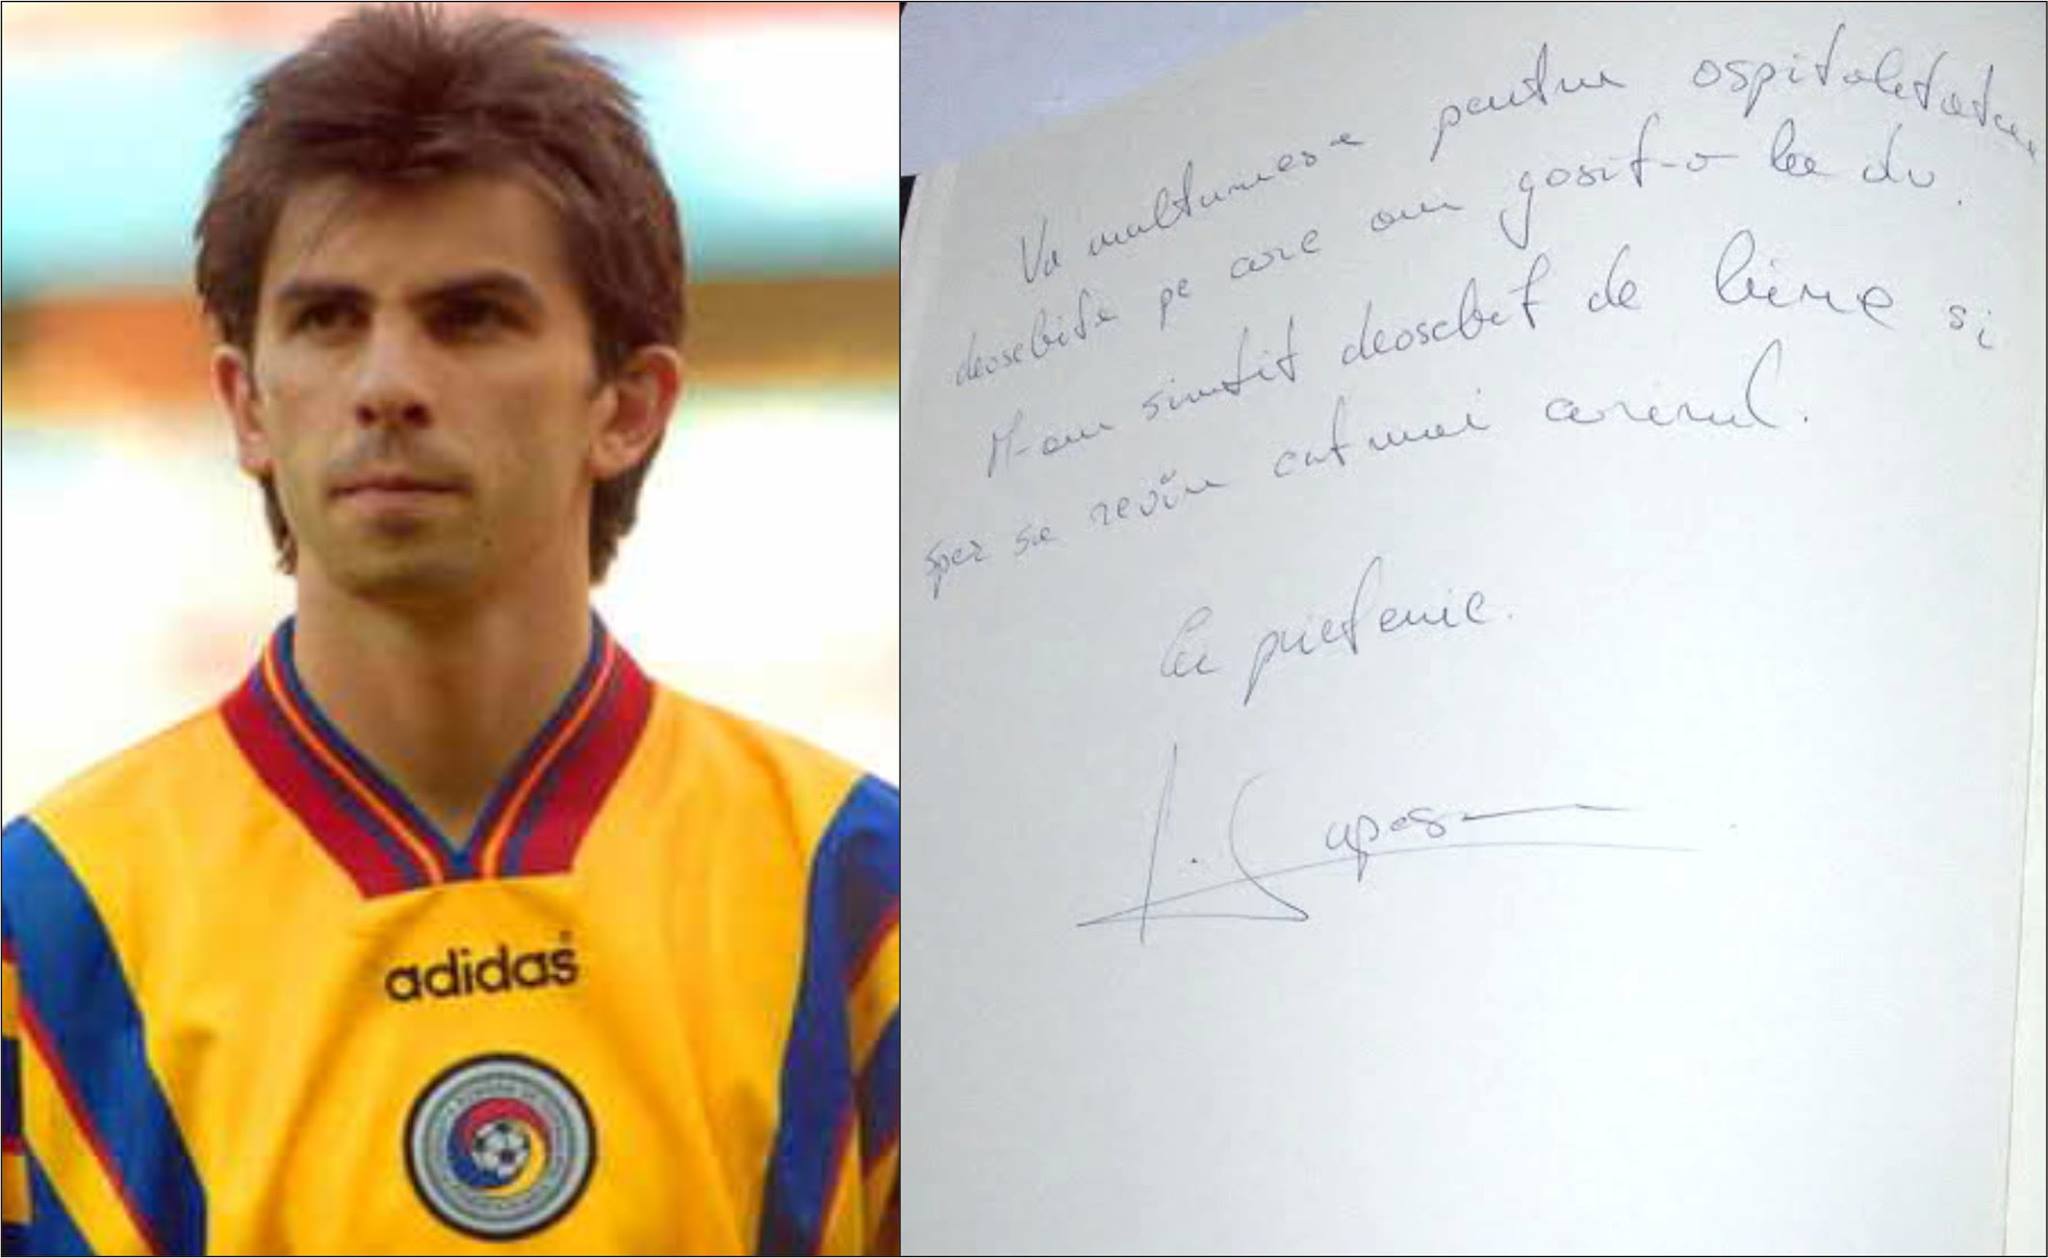 adidas
Va multumesc pentru ospitalitatea
deosebita pe care am gasit-o la dv.
M-am simtit deosebit de bine si
sper sa revin cat mai curind.
Cu prietenie.